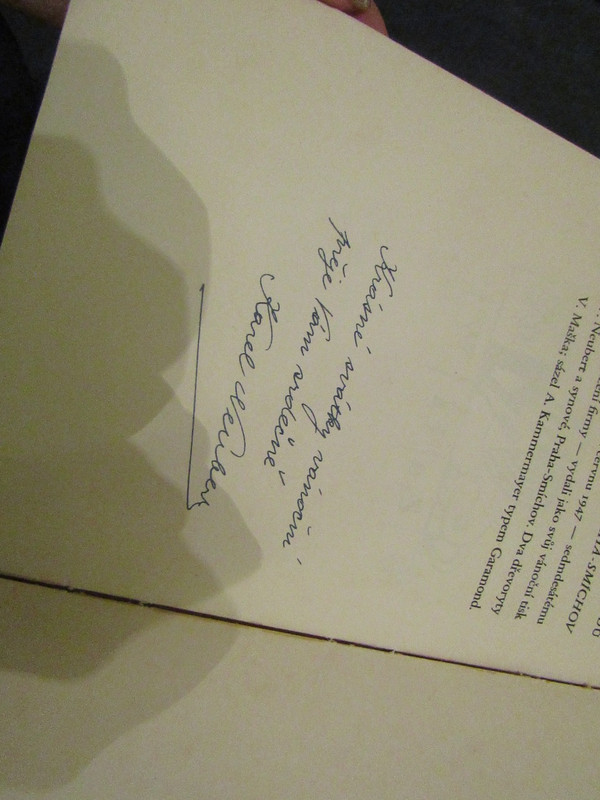 BU
TA-SMÍCHOV
červnu 1947 — sedmdesátému
Neubert a synové, Praha-Smíchov — vydali jako svůj vánoční tisk
V. Maška; sázel A. Kammermayer typem Garamond. Dva dřevoryty
Krásné svátky vánoční
přeje Vám srdečně
Karel Neubert